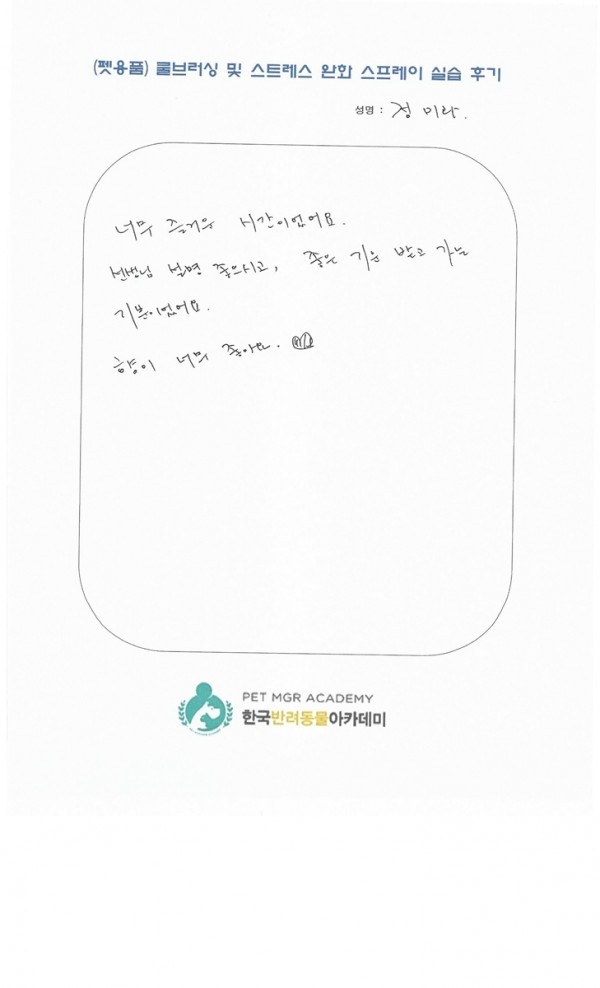 (펫용품) 쿨브러싱 및 스트레스 완화 스프레이 실습 후기
성명 : 정 미라.
너무 즐거운 시간이었어요.
선생님 설명 좋으시고, 좋은 기운 받고 가는
기분이었어요.
향이 너무 좋아요.
PET MGR ACADEMY
한국반려동물아카데미